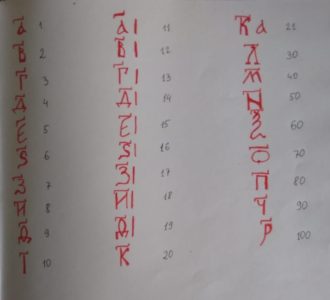 а҃ 1
в҃ 2
г҃ 3
д҃ 4
е҃ 5
ѕ҃ 6
з҃ 7
и҃ 8
ѳ҃ 9
і҃ 10
а҃і 11
в҃і 12
г҃і 13
д҃і 14
е҃і 15
ѕ҃і 16
з҃і 17
и҃і 18
ѳ҃і 19
к҃ 20
к҃а 21
л҃ 30
м҃ 40
н҃ 50
ѯ҃ 60
о҃ 70
п҃ 80
ч҃ 90
р҃ 100